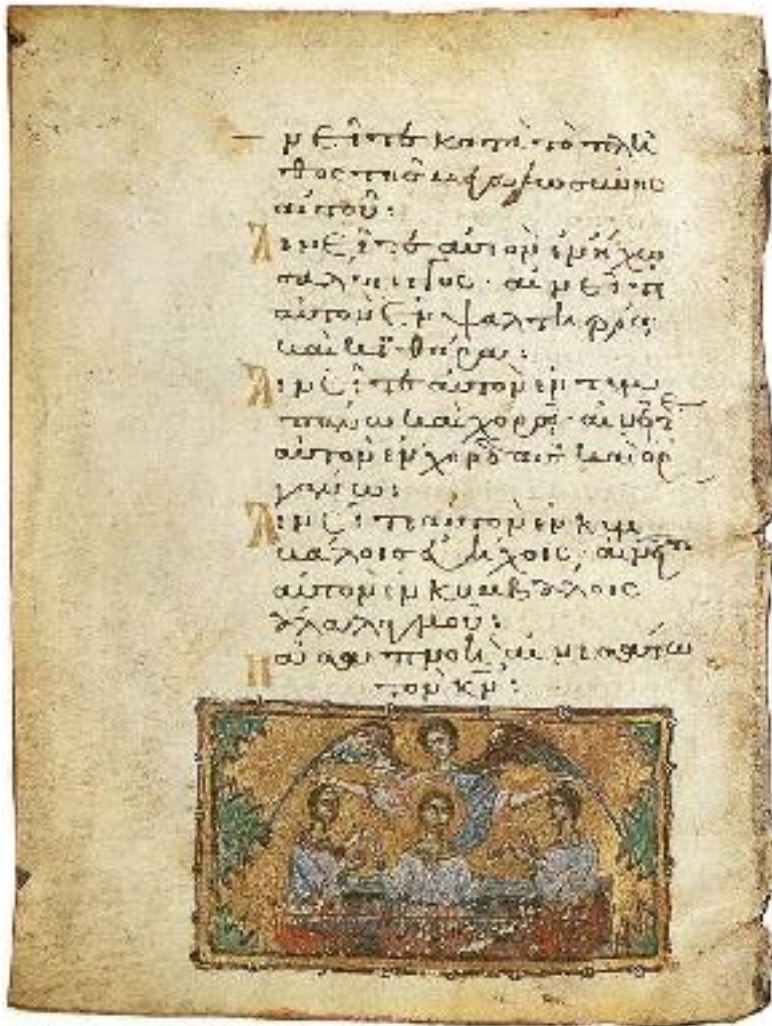 νεῖτε κατὰ τὸ πλῆ
θος τῆς μεγαλωσύνης
αὐτοῦ:
Αἰνεῖτε αὐτὸν ἐν ἤχω
σάλπιγγος· αἰνεῖτε
αὐτὸν ἐν ψαλτηρίω
καὶ κιθάρα:
Αἰνεῖτε αὐτὸν ἐν τυμ
πάνω καὶ χορῶ· αἰνεῖτε
αὐτὸν ἐν χορδαῖς καὶ ὀρ
γάνω:
Αἰνεῖτε αὐτὸν ἐν κυμ
βάλοις εὐήχοις· αἰνεῖτε
αὐτὸν ἐν κυμβάλοις
ἀλαλαγμοῦ:
Πᾶσα πνοὴ αἰνεσάτω
τὸν κ̅ν̅: